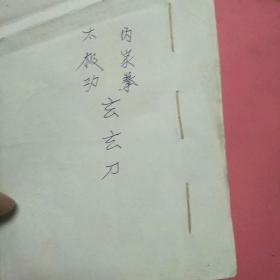 内家拳
太极功
玄玄刀